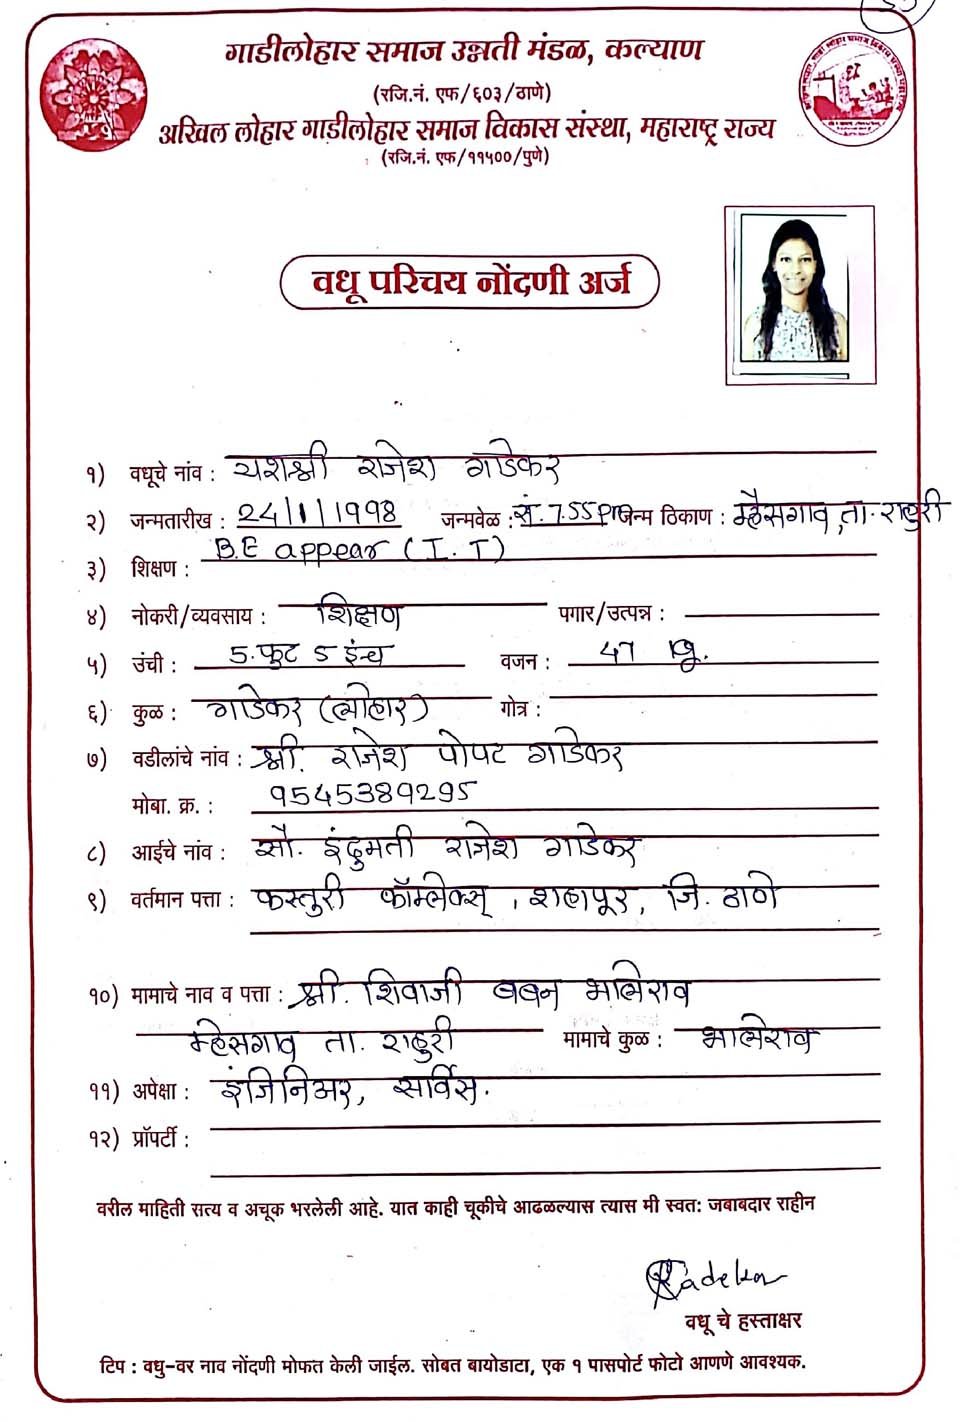 गाडीलोहार समाज उन्नती मंडळ, कल्याण
(रजि.नं. एफ/६०३/ठाणे)
अखिल लोहार गाडीलोहार समाज विकास संस्था, महाराष्ट्र राज्य
(रजि.नं. एफ/११५००/पुणे)
वधू परिचय नोंदणी अर्ज
१) वधूचे नांव : यशश्री राजेश गाडेकर
२) जन्मतारीख : 24/1/1998 जन्मवेळ : सं. 7.55pm जन्म ठिकाण : म्हैसगाव, ता. राहुरी
३) शिक्षण : B.E appear (I. T)
४) नोकरी/व्यवसाय : शिक्षण पगार/उत्पन्न :
५) उंची : 5. फुट 5 इंच वजन : 47
६) कुळ : गाडेकर (लोहार) गोत्र :
७) वडीलांचे नांव : श्री. राजेश पोपट गाडेकर
मोबा. क्र. : 9545389295
८) आईचे नांव : सौ. इंदुमती राजेश गाडेकर
९) वर्तमान पत्ता : कस्तुरी कॉम्लेक्स्, शहापूर, जि. ठाणे
१०) मामाचे नाव व पत्ता : श्री. शिवाजी बबन भालेराव
म्हेसगाव ता. राहुरी मामाचे कुळ : भालेराव
११) अपेक्षा : इंजिनिअर, सर्विस.
१२) प्रॉपर्टी :
वरील माहिती सत्य व अचूक भरलेली आहे. यात काही चूकीचे आढळल्यास त्यास मी स्वतः जबाबदार राहीन
Gadekar
वधू चे हस्ताक्षर
टिप : वधु-वर नाव नोंदणी मोफत केली जाईल. सोबत बायोडाटा, एक १ पासपोर्ट फोटो आणणे आवश्यक.